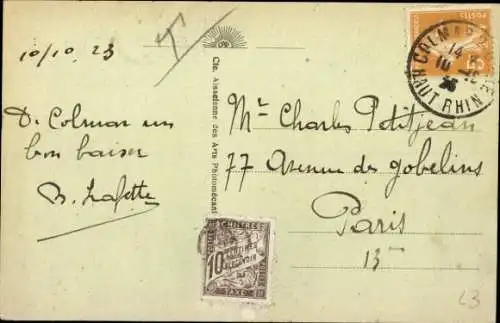 10/10, 23
T
POSTES
COLMAR
14
10
HAUT RHIN
Cie. Alsacienne des Arts Photomécani
De Colmar un
bon baiser
Mr Charles Petitjean
77 Avenue des gobelins
Paris
13e
CHIFFRE
10
TAXE